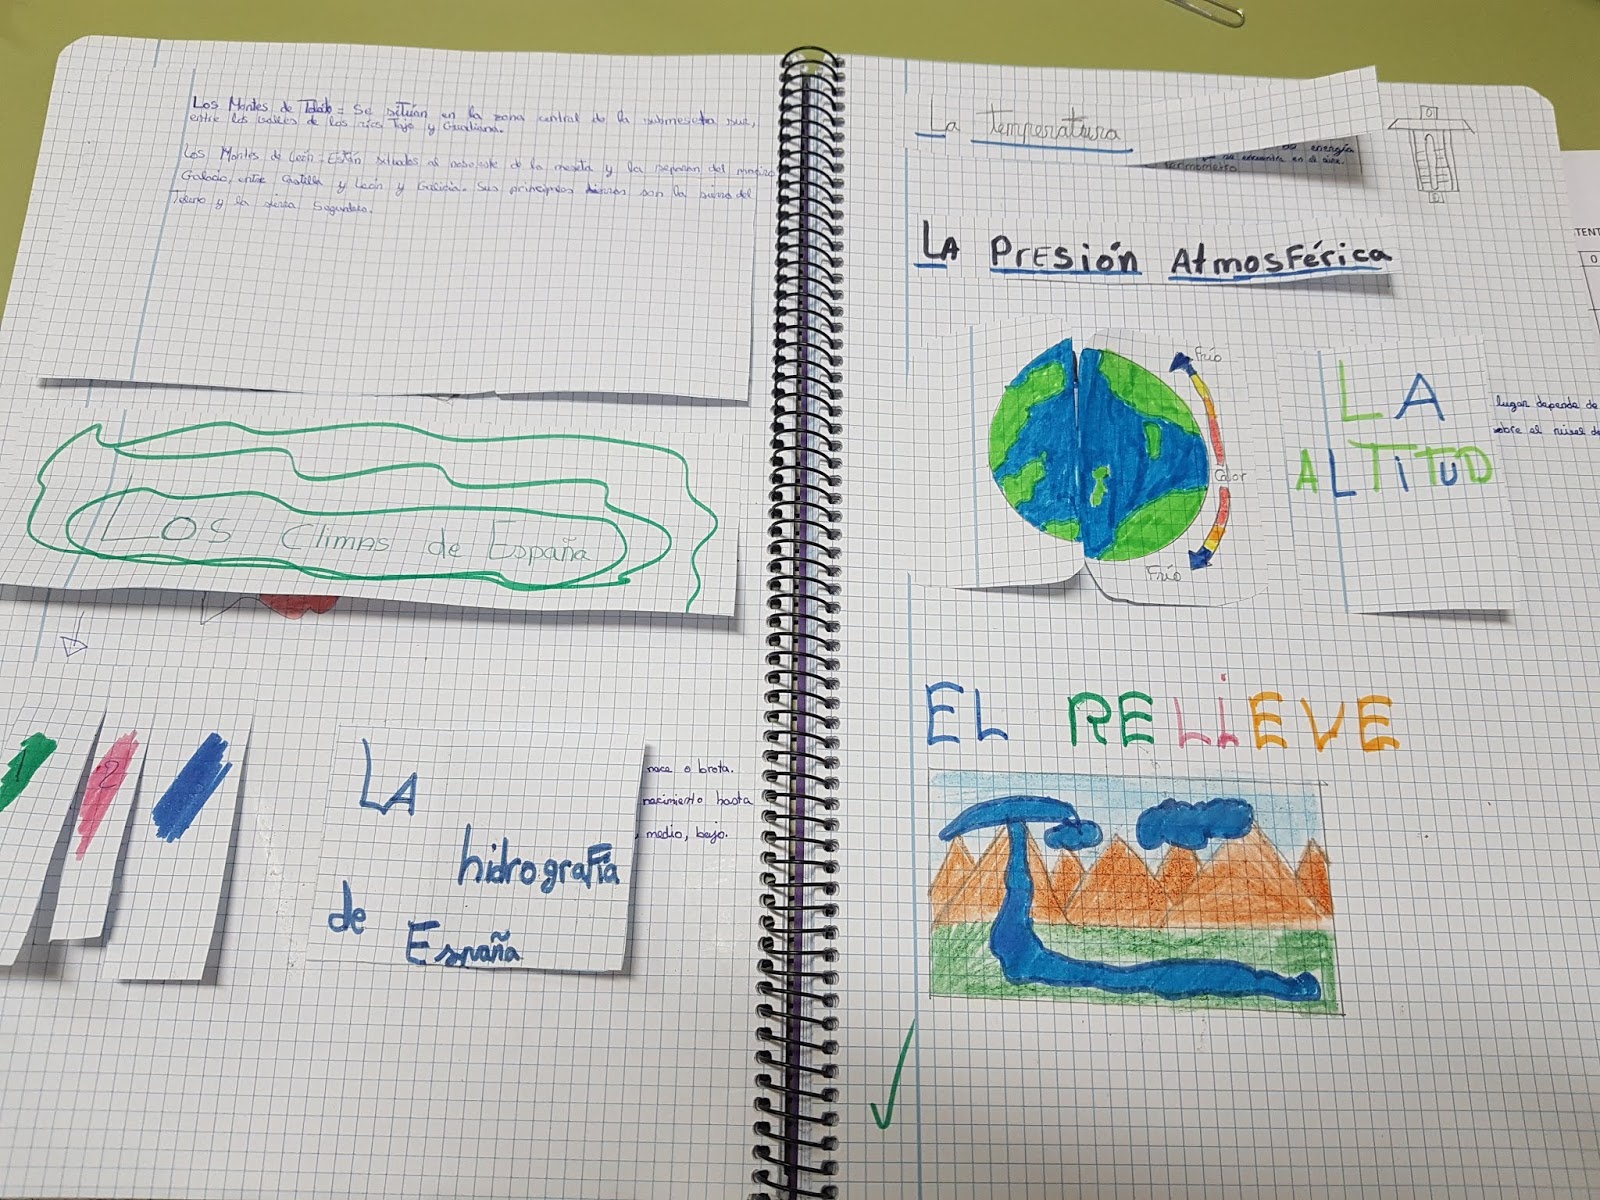 Los Montes de Toledo = Se sitúan en la zona central de la submeseta sur,
entre los valles de los ríos Tajo y Guadiana.
Los Montes de León = Están situados al noroeste de la meseta y la separan del macizo
Galaico, entre Castilla y León y Galicia. Sus principales sierras son la sierra del
Teleno y la sierra Segundera.
Los Climas de España
1
2
LA
hidrografía
de
España
nace o brota.
nacimiento hasta
, medio, bajo.
La temperatura
energía
se encuentra en el aire.
termómetro
LA PresiÓn AtmosFérica
Frío
Calor
Frío
LA
ALTITUD
lugar depende de
sobre el nivel de
EL RELIEVE
TENT
0